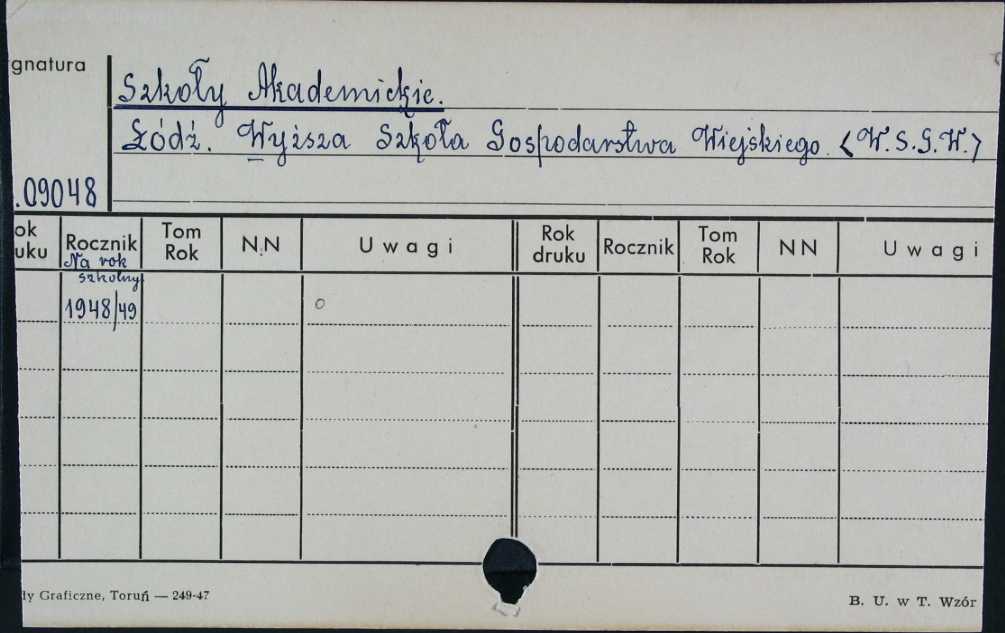 gnatura
Szkoły Akademickie.
Łódź. Wyższa Szkoła Gospodarstwa Wiejskiego. <W.S.G.W.>
.09048
ok uku Rocznik Tom Rok N.N Uwagi Rok druku Rocznik Tom Rok NN Uwagi
Na rok
szkolny
1948/49
dy Graficzne, Toruń — 249-47
B. U. w T. Wzór